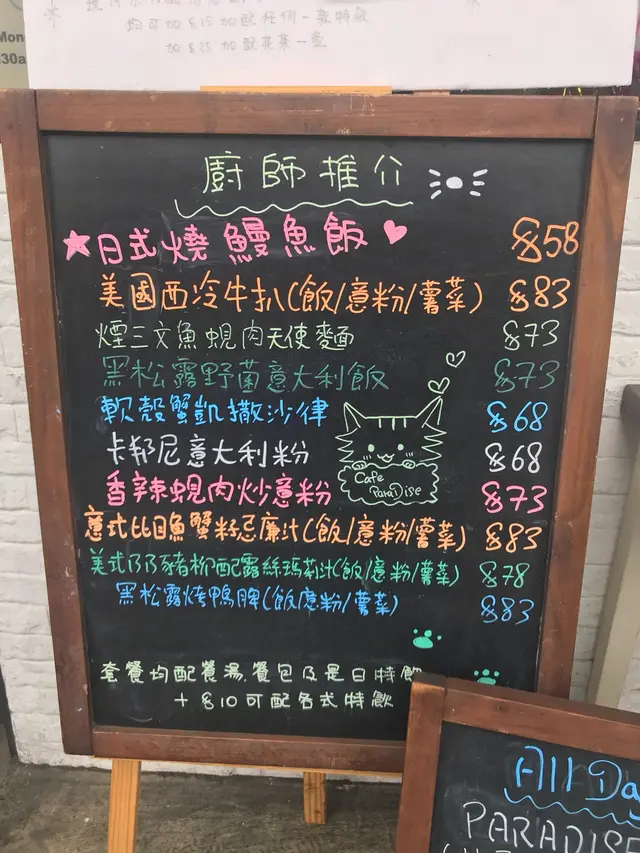 Mon
:30a
均可加$15加配任何一款特飲
加$25加配花茶一壺
廚師推介
日式燒鰻魚飯 $58
美國西冷牛扒(飯/意粉/薯菜) $83
煙三文魚蜆肉天使麵 $73
黑松露野菌意大利飯 $73
軟殼蟹凱撒沙律 $68
卡邦尼意大利粉 $68
香辣蜆肉炒意粉 $73
Cafe
ParaDise
意式比目魚蟹籽忌廉汁(飯/意粉/薯菜) $83
美式乃乃豬柳配露絲瑪莉汁(飯/意粉/薯菜) $78
黑松露烤鴨脾(飯/意粉/薯菜) $83
套餐均配餐湯,餐包及是日特飲
+$10可配各式特飲
All Da
PARADISE